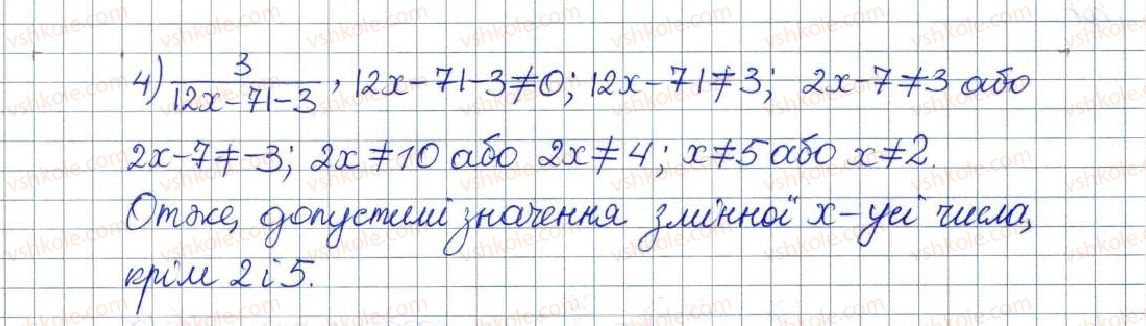 4) 3/(|2x-7|-3), |2x-7|-3≠0; |2x-7|≠3; 2x-7≠3 або
2x-7≠-3; 2x≠10 або 2x≠4; x≠5 або x≠2.
Отже, допустимі значення змінної x - усі числа,
крім 2 і 5.